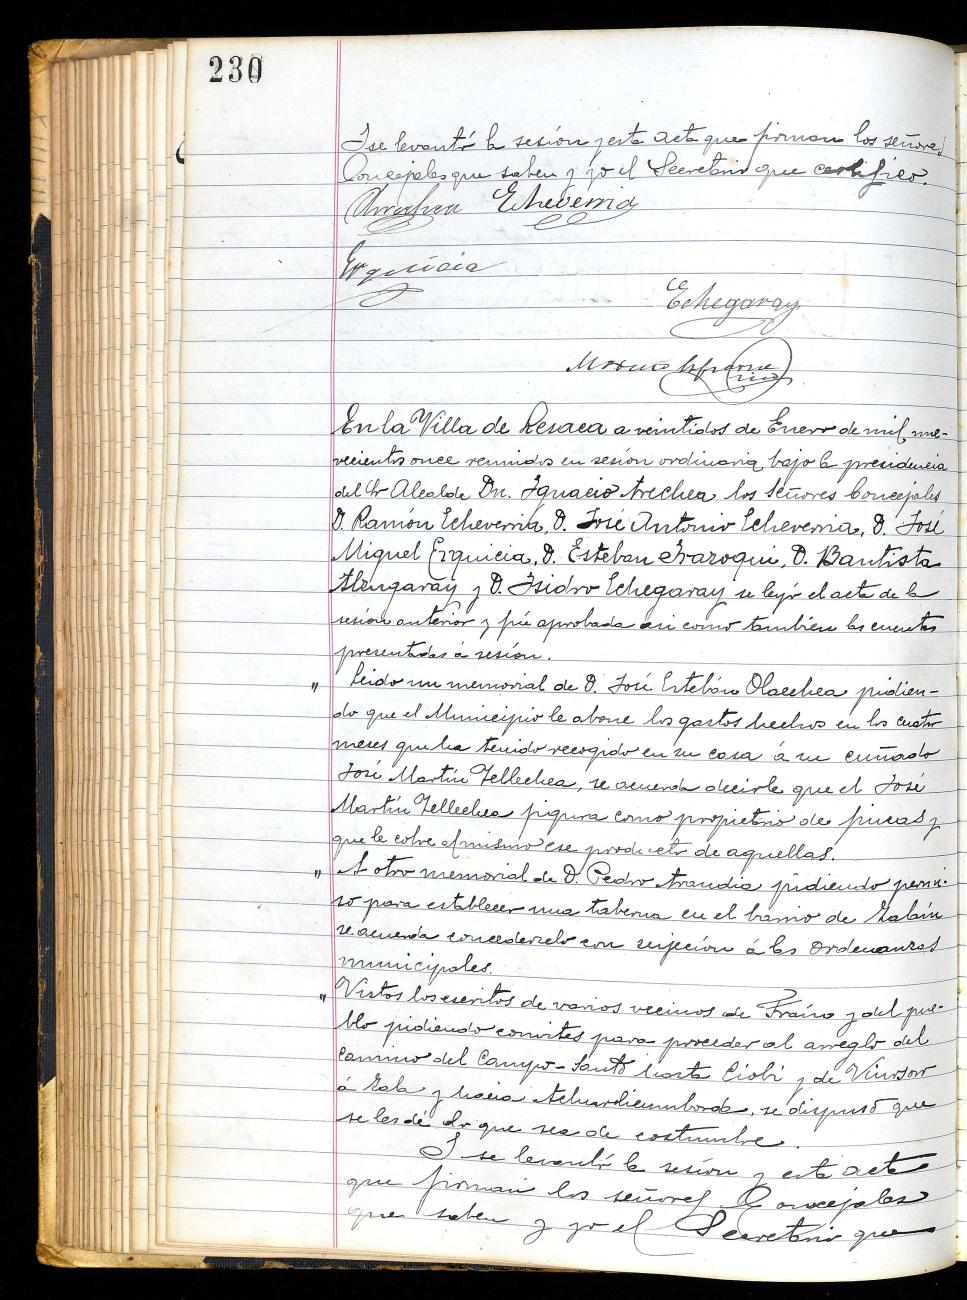 230
Y se levantó la sesión y esta acta que firman los señores
Concejales que saben y yo el Secretario que certifico.
Echeverria
Erquicia
Echegaray
En la Villa de Lesaca a veintidos de Enero de mil nue-
vecientos once reunidos en sesión ordinaria bajo la presidencia
del Sr Alcalde Dn. Ignacio Arechea los Señores Concejales
D. Ramón Echeverria, D. José Antonio Echeverria, D. José
Miguel Erquicia, D. Esteban Irazoqui, D. Bautista
y D. Isidro Echegaray se leyó el acta de la
sesión anterior y fué aprobada asi como tambien las cuentas
presentadas á sesión.
" Leido un memorial de D. José Estebán Olaechea pidien-
do que el Municipio le abone los gastos hechos en los cuatro
meses que ha tenido recogido en su casa á su cuñado
José Martín Tellechea, se acuerda decirle que el José
Martín Tellechea figura como propietario de fincas y
que le cobre al mismo ese producto de aquellas.
" A otro memorial de D. Pedro Arandia pidiendo permi-
so para establecer una taberna en el barrio de Zalain
se acuerda concederselo con sujeción á las Ordenanzas
municipales.
" Vistos los escritos de varios vecinos de Fraino y del pue-
blo pidiendo convites para proceder al arreglo del
camino del Campo-Santo hasta Ciobi y de
á Zala y hacia se dispuso que
se les dé lo que sea de costumbre.
Y se levantó la sesión y esta acta
que firman los señores Concejales
que saben y yo el Secretario que